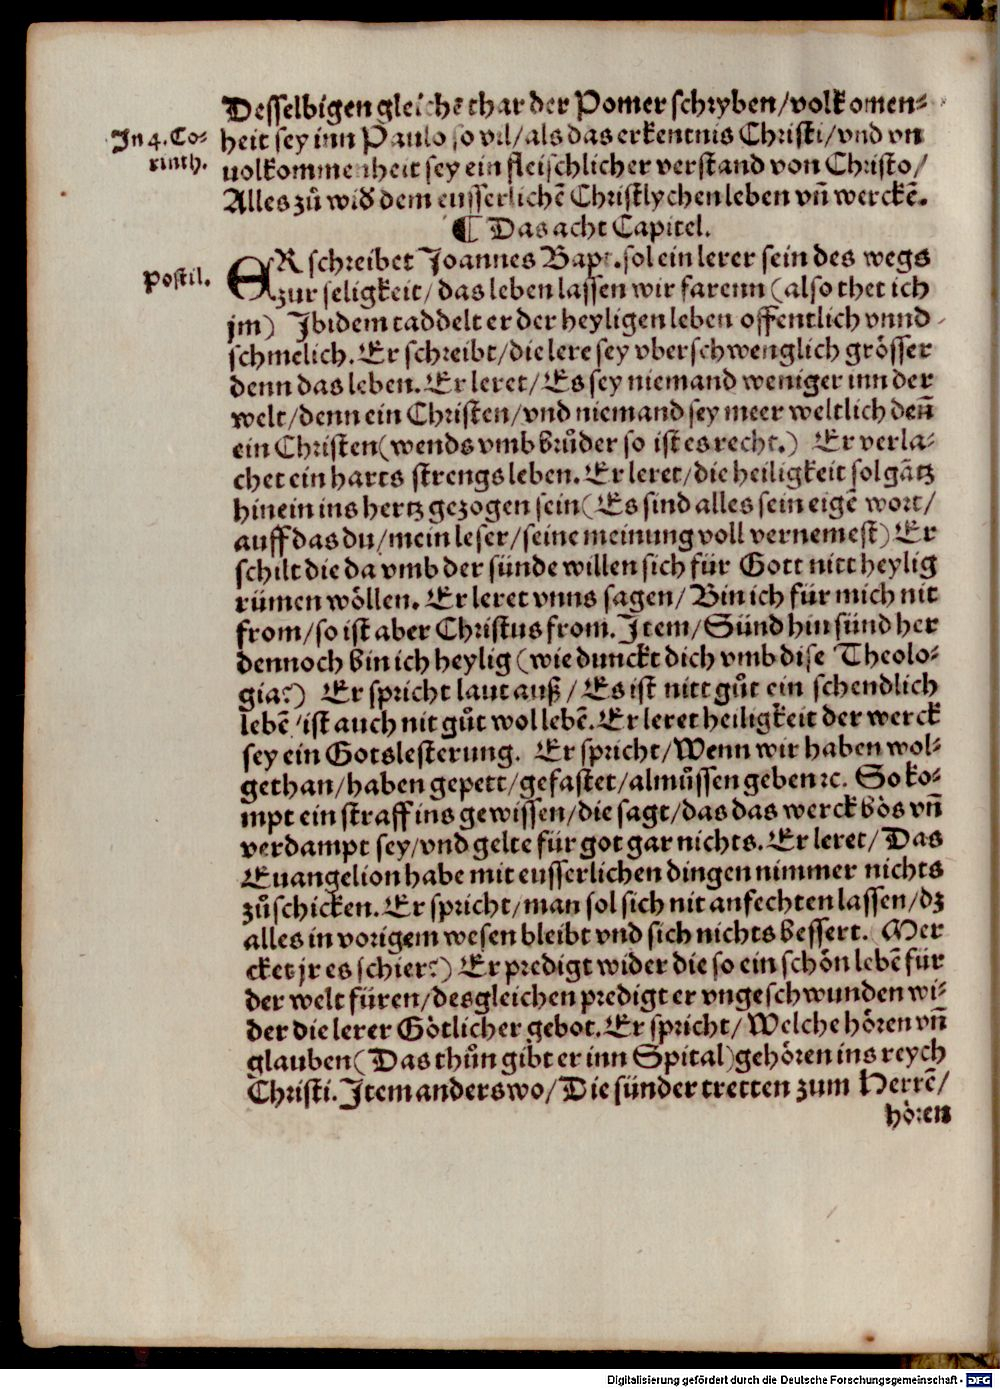 Desselbigen gleichē thar der Pomer schryben/volkomen-
In 4. Co- heit sey inn Paulo so vil/als das erkentnis Christi/vnd vn
rinth. uolkommenheit sey ein fleischlicher verstand von Christo/
Alles zů wid̄ dem eusserlichē Christlychen leben vn̄ werckē.
¶ Das acht Capitel.
Postil. ER schreibet Joannes Bapt. sol ein lerer sein des wegs
zur seligkeit/das leben lassen wir farenn (also thet ich
jm) Ibidem taddelt er der heyligen leben offentlich vnnd
schmelich. Er schreibt/die lere sey vberschwenglich grösser
denn das leben. Er leret/Es sey niemand weniger inn der
welt/denn ein Christen/vnd niemand sey meer weltlich den̄
ein Christen (wends vmb brůder so ist es recht.) Er verla-
chet ein harts strengs leben. Er leret/die heiligkeit sol gātz
hinein ins hertz gezogen sein (Es sind alles sein eigē wort/
auff das du/mein leser/seine meinung voll vernemest) Er
schilt die da vmb der sünde willen sich für Gott nitt heylig
rümen wöllen. Er leret vnns sagen/Bin ich für mich nit
from/so ist aber Christus from. Item/Sünd hin sünd her
dennoch bin ich heylig (wie dunckt dich vmb dise Theolo-
gia?) Er spricht laut auß/Es ist nitt gůt ein schendlich
lebē/ist auch nit gůt wol lebē. Er leret heiligkeit der werck
sey ein Gotslesterung. Er spricht/Wenn wir haben wol-
gethan/haben gepett/gefastet/almůssen geben ꝛc. So ko-
mpt ein straff ins gewissen/die sagt/das das werck bös vn̄
verdampt sey/vnd gelte für got gar nichts. Er leret/Das
Euangelion habe mit eusserlichen dingen nimmer nichts
zůschicken. Er spricht/man sol sich nit anfechten lassen/dz
alles in vorigem wesen bleibt vnd sich nichts bessert. (Mer
cket jr es schier?) Er predigt wider die so ein schön lebē für
der welt füren/desgleichen predigt er vngeschwunden wi-
der die lerer Götlicher gebot. Er spricht/Welche hören vn̄
glauben (Das thůn gibt er inn Spital) gehören ins reych
Christi. Item anderswo/Die sünder tretten zum Herrē/
hören
Digitalisierung gefördert durch die Deutsche Forschungsgemeinschaft - DFG